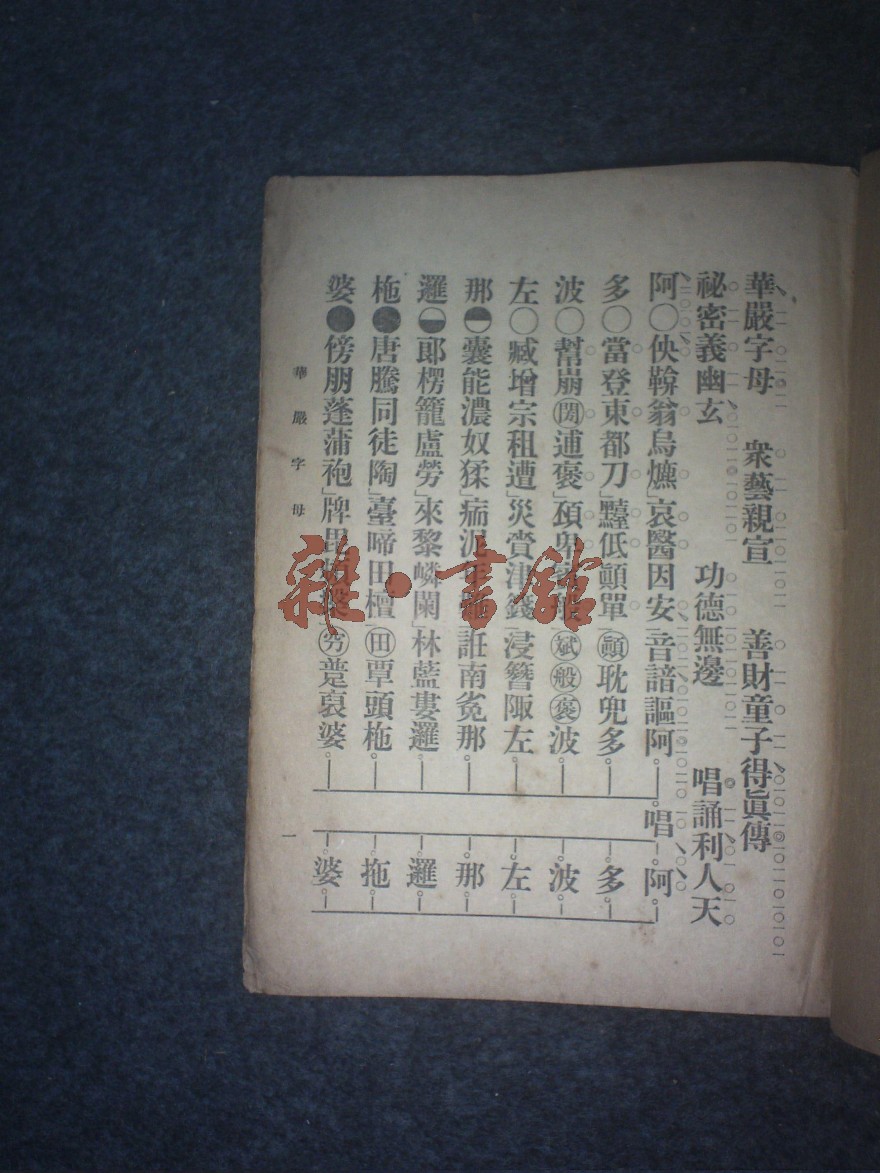 華嚴字母 衆藝親宣 善財童子得眞傳
祕密義幽玄 功德無邊 唱誦利人天
阿〇佒鞥翁烏爊」哀醫因安」音諳謳阿。唱阿
多〇當登東都刀」𪒴低顚單㊀顚耽兜多。多
波〇幫崩閍逋褒」卑般斌般褒波。波
左〇臧增宗租遭」災賫津籛」浸簪陬左。左
那囊能濃奴猱」泥誑南那。那
邏郞楞籠盧勞」來黎嶙闌」林藍婁邏。邏
柂唐騰同徒陶」臺啼田檀」田覃頭柂。拖
婆傍朋蓬蒲袍」牌毘裒婆。婆
華嚴字母
一
雜·書館